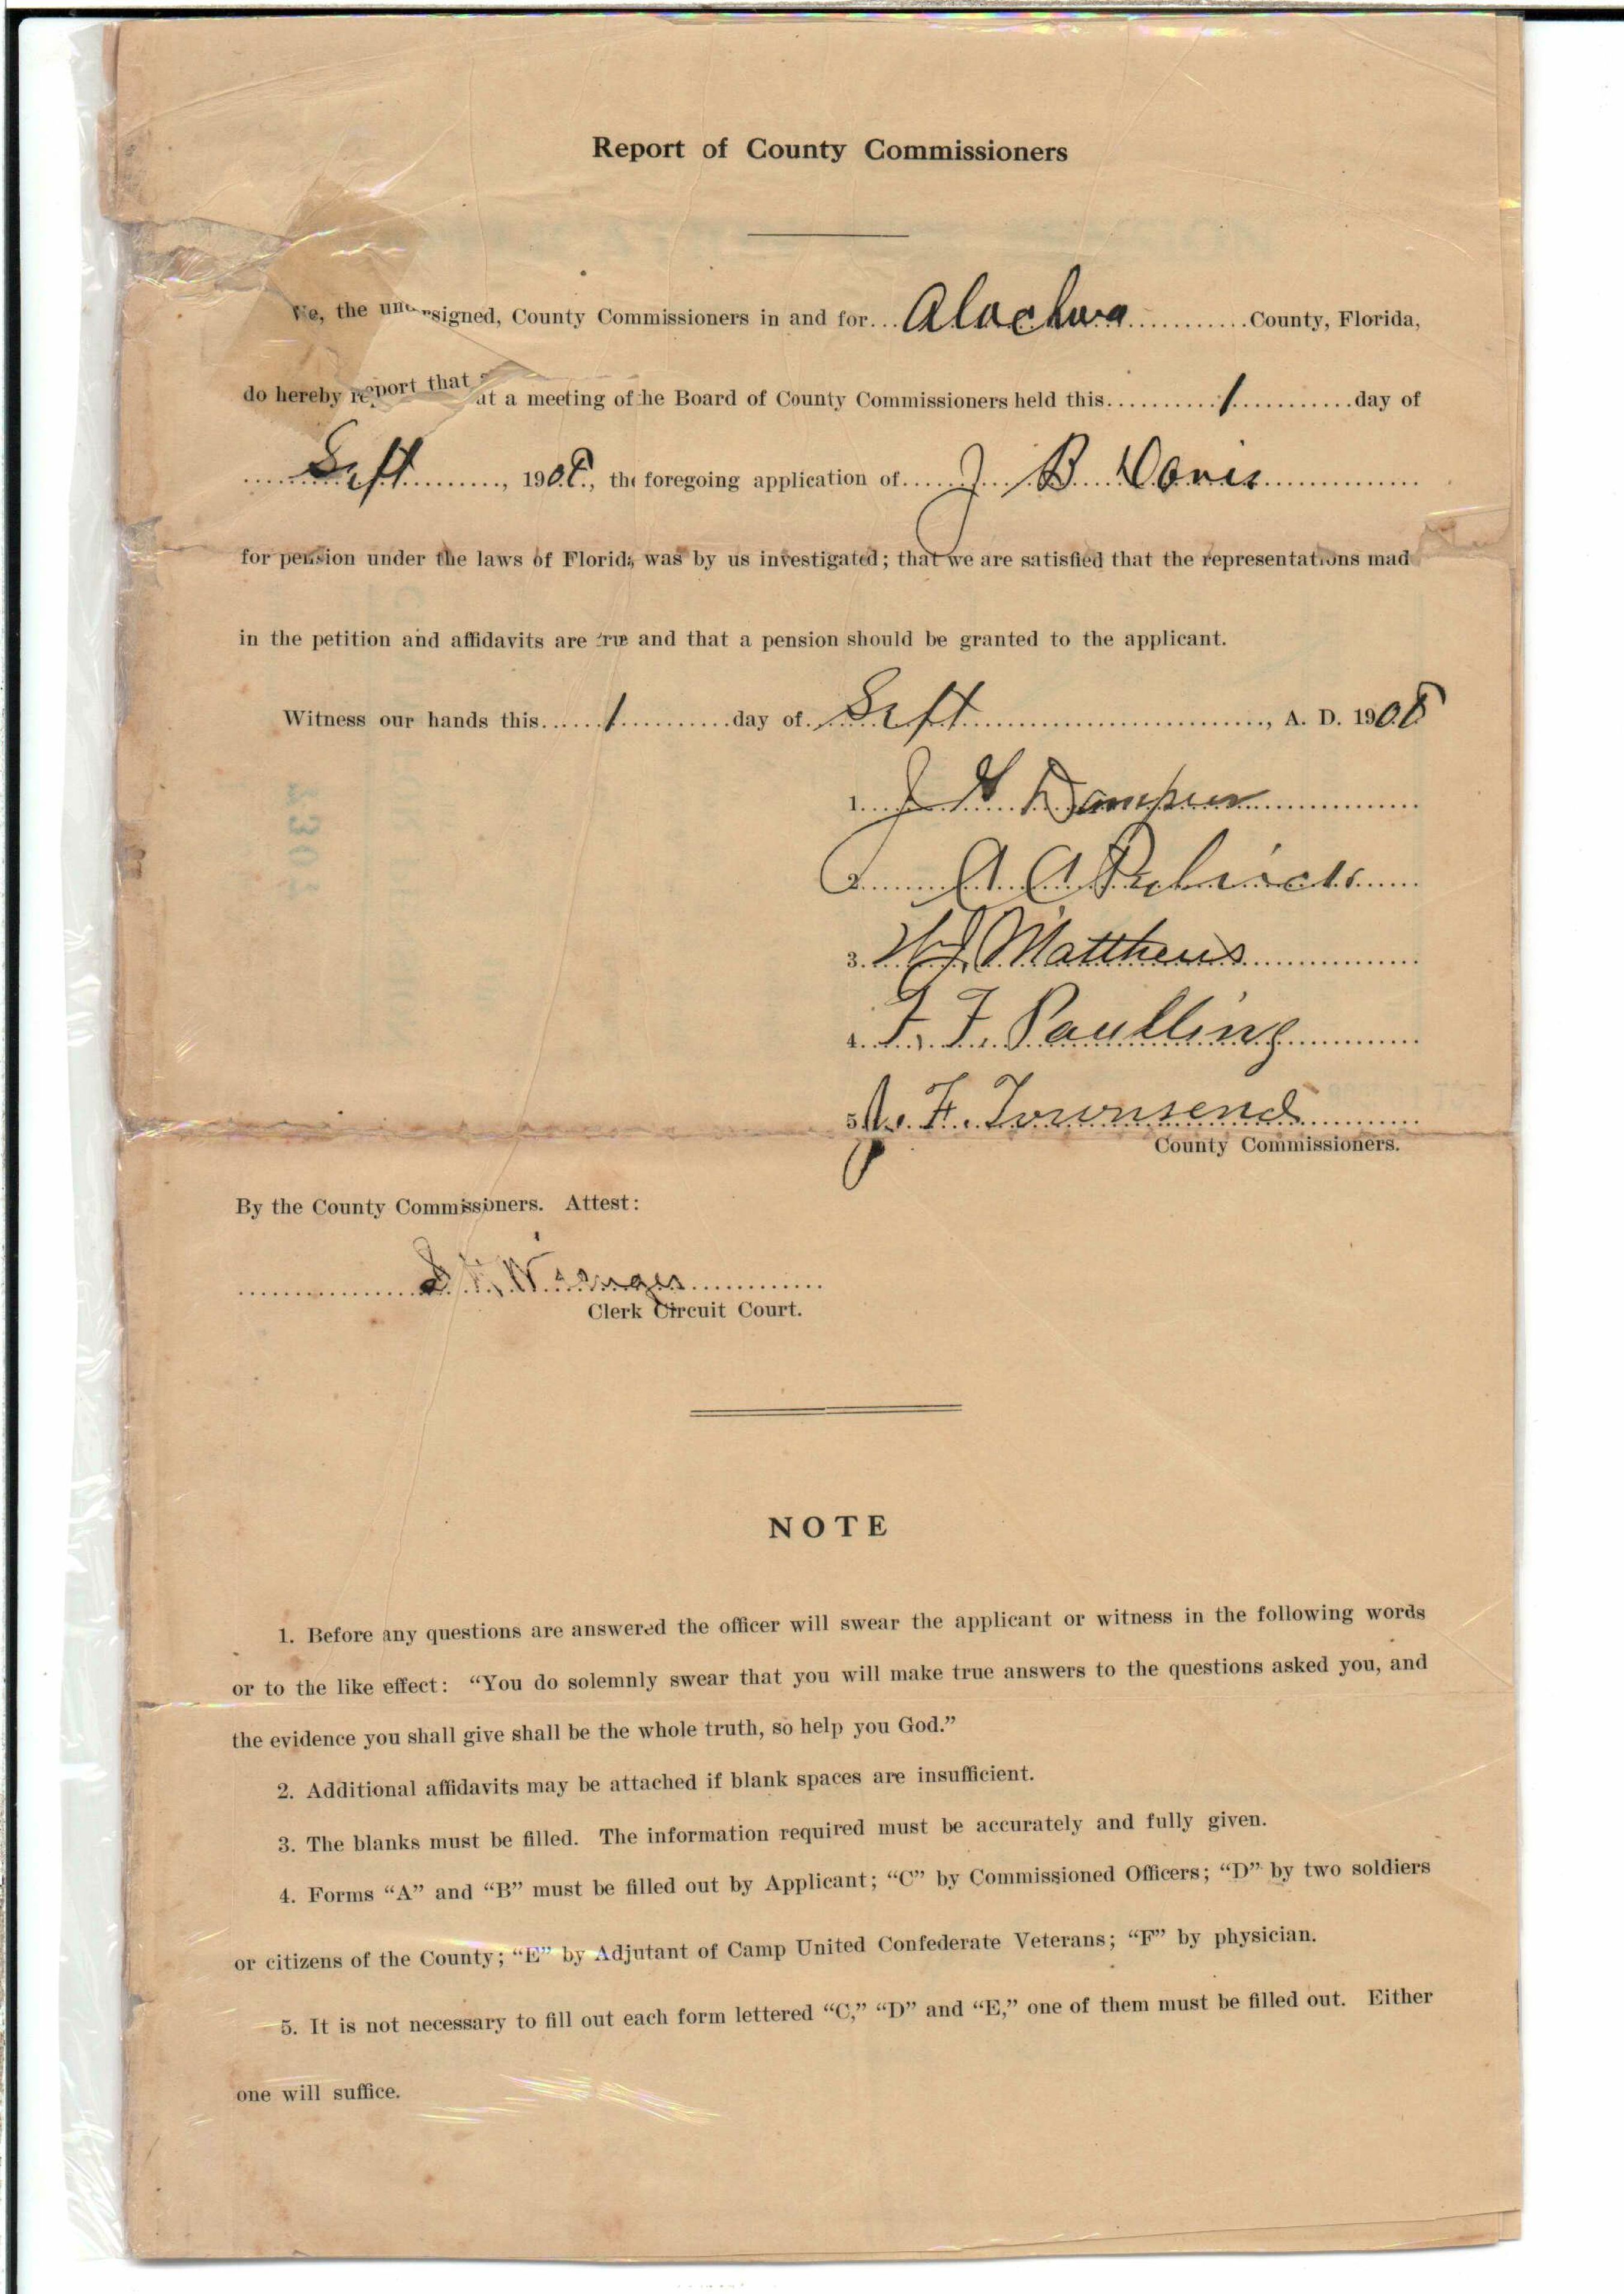 Report of County Commissioners
We, the undersigned, County Commissioners in and for Alachua County, Florida,
do hereby report that at a meeting of the Board of County Commissioners held this 1 day of
Sept, 1908, the foregoing application of J B Davis
for pension under the laws of Florida was by us investigated; that we are satisfied that the representations mad
in the petition and affidavits are true and that a pension should be granted to the applicant.
Witness our hands this 1 day of Sept, A. D. 1908
1. J H
2. A A
3. W J Matthews
4. F. F. Paulling
5. F. Townsend
County Commissioners.
By the County Commissioners. Attest:
Clerk Circuit Court.
NOTE
1. Before any questions are answered the officer will swear the applicant or witness in the following words
or to the like effect: “You do solemnly swear that you will make true answers to the questions asked you, and
the evidence you shall give shall be the whole truth, so help you God.”
2. Additional affidavits may be attached if blank spaces are insufficient.
3. The blanks must be filled. The information required must be accurately and fully given.
4. Forms “A” and “B” must be filled out by Applicant; “C” by Commissioned Officers; “D” by two soldiers
or citizens of the County; “E” by Adjutant of Camp United Confederate Veterans; “F” by physician.
5. It is not necessary to fill out each form lettered “C,” “D” and “E,” one of them must be filled out. Either
one will suffice.